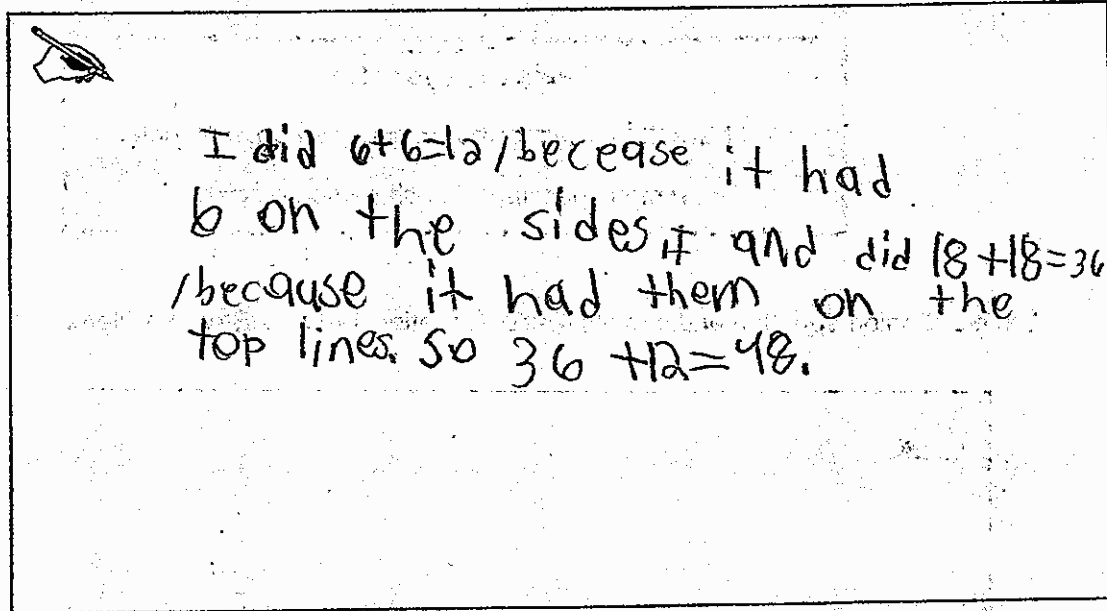 I did 6+6=12/becease it had
6 on the sides, I and did 18+18=36
/because it had them on the
top lines. So 36 +12=48.